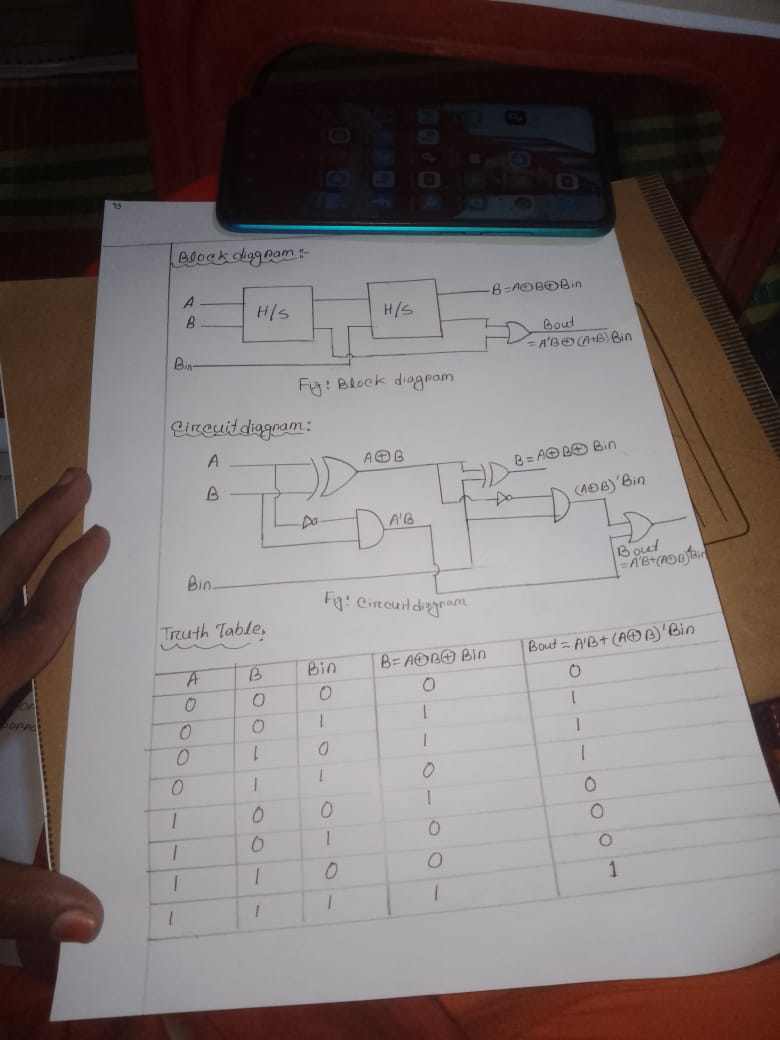 Block diagram :-
A
B
H/S
H/S
B=A⊕B⊕Bin
Bout
= A'B⊕(A+B) Bin
Bin
Fig: Block diagram
Circuit diagram:
A
B
A⊕B
B = A⊕B⊕ Bin
(A⊕B)' Bin
A'B
Bin
B out
= A'B+(A⊕B)'Bin
Fig: Circuit diagram
Truth Table,
A B Bin B= A⊕B⊕ Bin Bout = A'B+ (A⊕B)'Bin
0 0 0 0 0
0 0 1 1 1
0 1 0 1 1
0 1 1 0 1
1 0 0 1 0
1 0 1 0 0
1 1 0 0 0
1 1 1 1 1